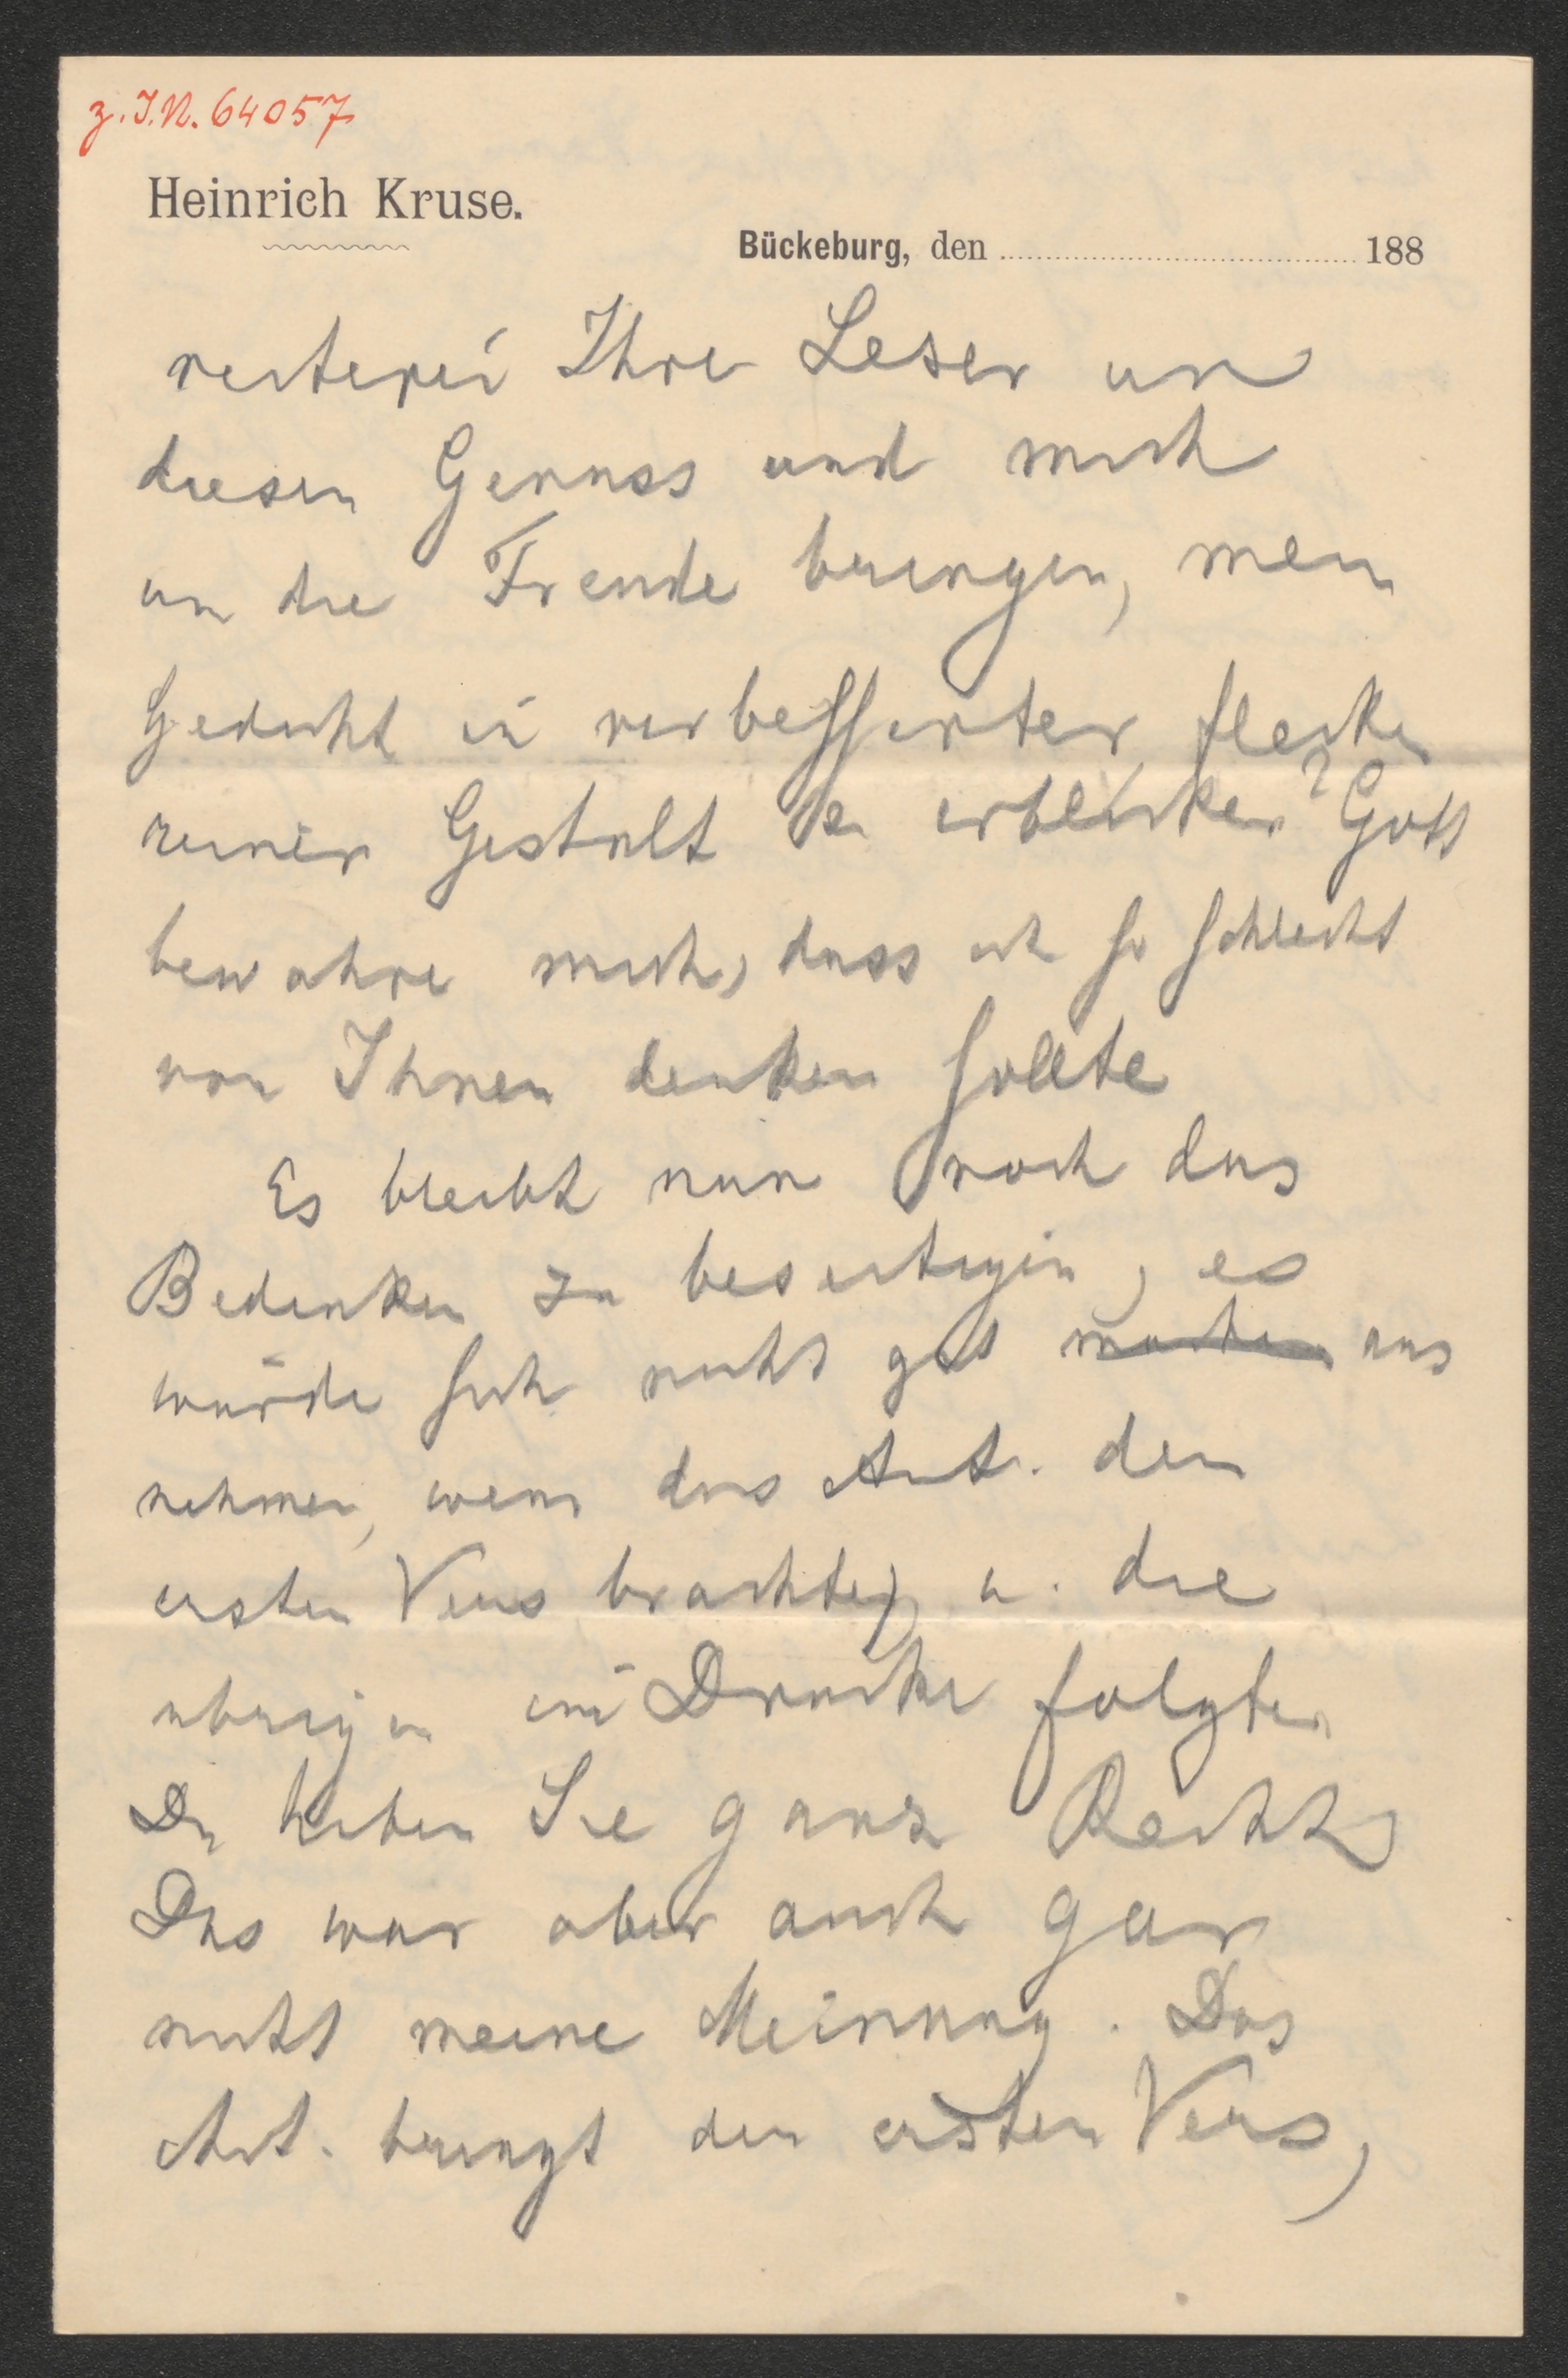 z. I.N. 64057
Heinrich Kruse.
Bückeburg, den 188
reiterei Ihre Leser um
diesen Genuss und mich
um die Freude bringen, mein
Gedicht in verbesserter flecken
reiner Gestalt zu erblicken? Gott
bewahre mich, dass ich so schlecht
von Ihnen denken sollte
Es bleibt nun noch das
Bedenken zu beseitigen, es
würde sich nicht gut machen aus
nehmen, wenn das Aut. den
ersten Vers brachte, u. die
übrigen im Drucke folgten
Da haben Sie ganz Recht
Das war aber auch gar
nicht meine Meinung. Das
Aut. bringt den ersten Vers,